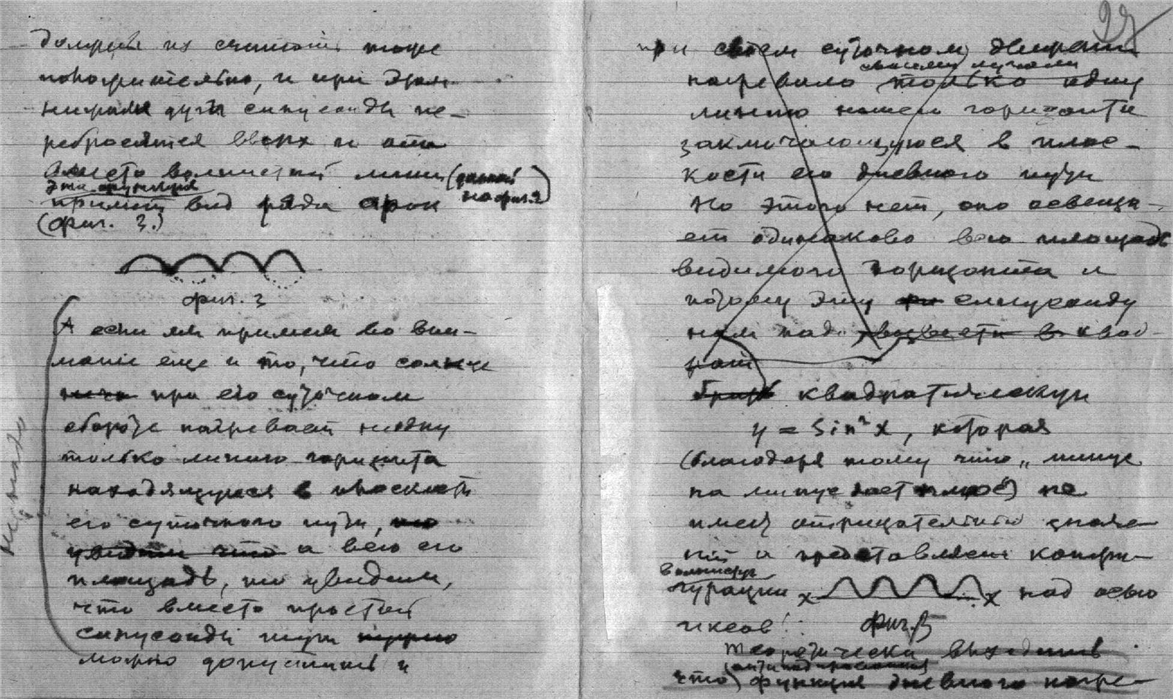 их считать тоже
положительно, и при этом
нижния дуги синусоиды пе-
ребросятся вверх и она
вместо волнистой линии (данной на фиг. 2)
эта функция
примет вид ряда арок
(фиг. 3.)
фиг. 3
А если мы примем во вни-
мание еще и то, что солнце
при его суточном
обороте нагревает не одну
только линию горизонта
находящуюся в плоскости
его суточного пути, но
увидим что а всю его
площадь, то увидим,
что вместо простой
синусоиды нужно
можно допустить и
при своем суточном движении
нагревало своими лучами только одну
линию нашего горизонта
заключающуюся в плос-
кости его дневного пути
Но этого нет, оно освеща-
ет одинаково всю площадь
видимого горизонта и
потому эту синусоиду
нам надо возвести в квад-
рат
брать квадратическую
y = Sin²x, которая
(благодаря тому что „минус
на минус дает плюс) не
имеет отрицательных значе-
ний и представляет конфи-
волнистую
гурации x x над осью
иксов
фиг. 5
Теоретически выходит
что функция дневного нагре-